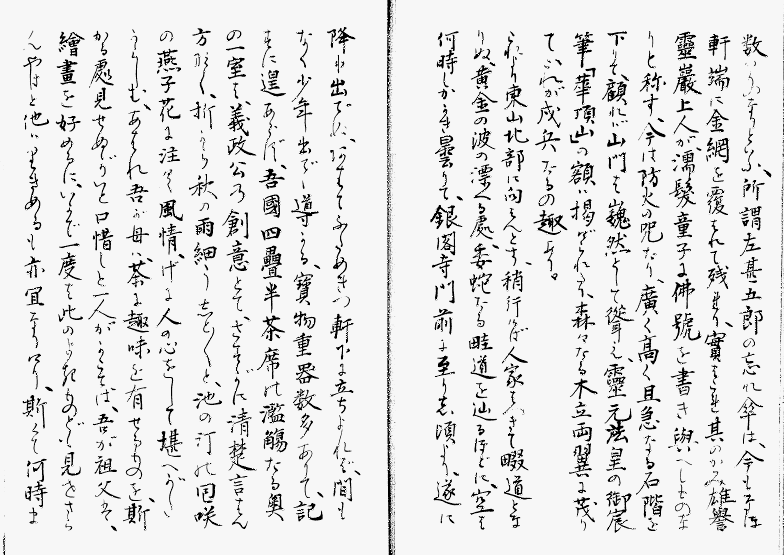 数の一なりといふ、所謂左甚五郎の忘れ傘は、今もなほ
軒端に金網を覆はれて残れり、實にそは其のかみ雄譽
靈巖上人が濡髮童子に佛號を書き與へしものな
りと称す、今は防火の咒なり、廣く高く且急なる石階を
下りて、顧れば山門は巍然として聳え、靈元法皇の御宸
筆「華頂山」の額は掲げられ、森々なる木立両翼に茂り
て、これが成兵なるの趣あり。
これより東山北部に向はんとす、稍行けば人家つきて畷道とな
りぬ、黄金の波の漂へる處、委蛇たる畦道を辿るほどに、空は
何時しかかき曇りて、銀閣寺門前に至りし頃より、遂に
降り出でぬ、
軒下に立ちよれば、間も
なく少年出で、導かる、寶物重器数多ありて、記
すに遑あらず、吾國四疊半茶席の濫觴なる奥
の一室は義政公の創意とて、さすがに清楚言はん
方なく、折から秋の雨細うしとしとと、池の汀の囘咲
の燕子花に注ぐ風情、げに人の心をして堪へがた
うらしむ、あはれ吾が母は、茶に趣味を有せるものを、斯
かる處見せぬがいと口惜しと一人がかこてば、吾が祖父は、
繪畫を好めるに、いかで一度は此のよきものども見せまゐら
んやはと他はいきまけるも亦宜なりけり、斯くて何時ま